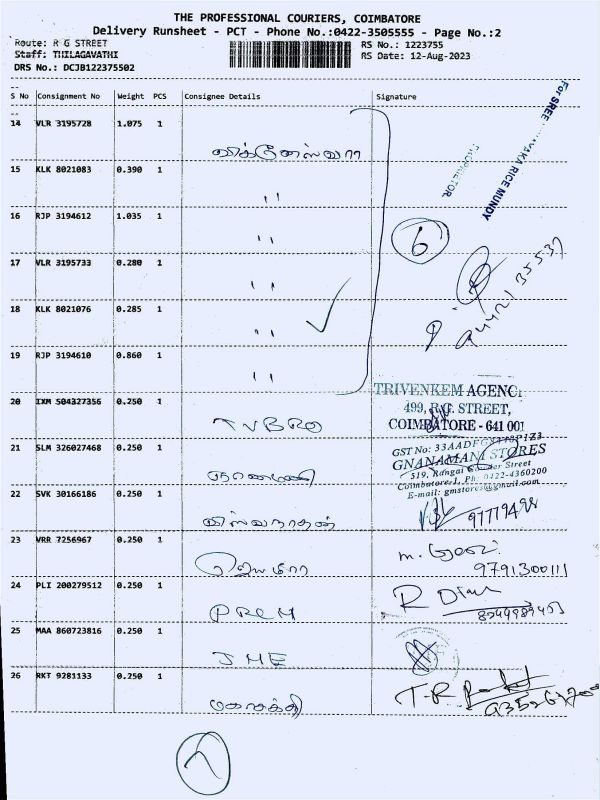 THE PROFESSIONAL COURIERS, COIMBATORE
Delivery Runsheet - PCT - Phone No.:0422-3505555 - Page No.:2
Route: R G STREET
RS No.: 1223755
Staff: THILAGAVATHI
RS Date: 12-Aug-2023
DRS No.: DCJB122375502
S No Consignment No Weight PCS Consignee Details Signature
14 VLR 3195728 1.075 1 விக்னேஸ்வரா
15 KLK 8021083 0.390 1 "
16 RJP 3194612 1.035 1 "
17 VLR 3195733 0.280 1 "
18 KLK 8021076 0.285 1 "
19 RJP 3194610 0.860 1 "
For SREE
RICE MUNDY
PROPRIETOR
6
TRIVENKEM AGENC
499, R.G. STREET,
COIMBATORE - 641 001
20 IXM 504327356 0.250 1 TVBRO
GNANAMANI STORES
Coimbatore-1, Ph: 0422-4360200
E-mail: gmstores@gmail.com
21 SLM 326027468 0.250 1 ஞானமணி
22 SVK 30166186 0.250 1 விஸ்வநாதன்
23 VRR 7256967 0.250 1 ஜெயமாரா
9791300111
24 PLI 200279512 0.250 1 PREM
25 MAA 860723816 0.250 1 JME
26 RKT 9281133 0.250 1 மகாசக்தி
7